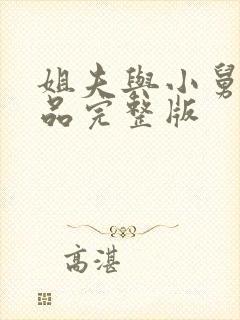 姐夫與小舅
品完整版
高湛